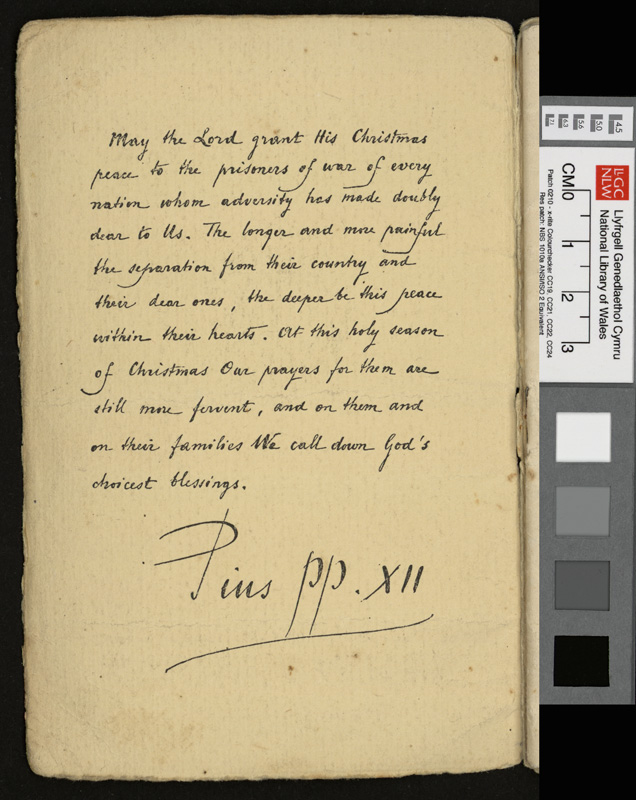 May the Lord grant His Christmas
peace to the prisoners of war of every
nation whom adversity has made doubly
dear to Us. The longer and more painful
the separation from their country and
their dear ones, the deeper be this peace
within their hearts. At this holy season
of Christmas Our prayers for them are
still more fervent, and on them and
on their families We call down God's
choicest blessings.
Pius pp. XII
7.1 6.3 5.6 5.0 4.5
CM 0 1 2 3
LlGC
NLW
Llyfrgell Genedlaethol Cymru
National Library of Wales
Patch 0210 - x-rite Colourchecker CC19, CC21, CC22, CC24
Res patch: NBS 1010a ANSI/ISO 2 Equivalent